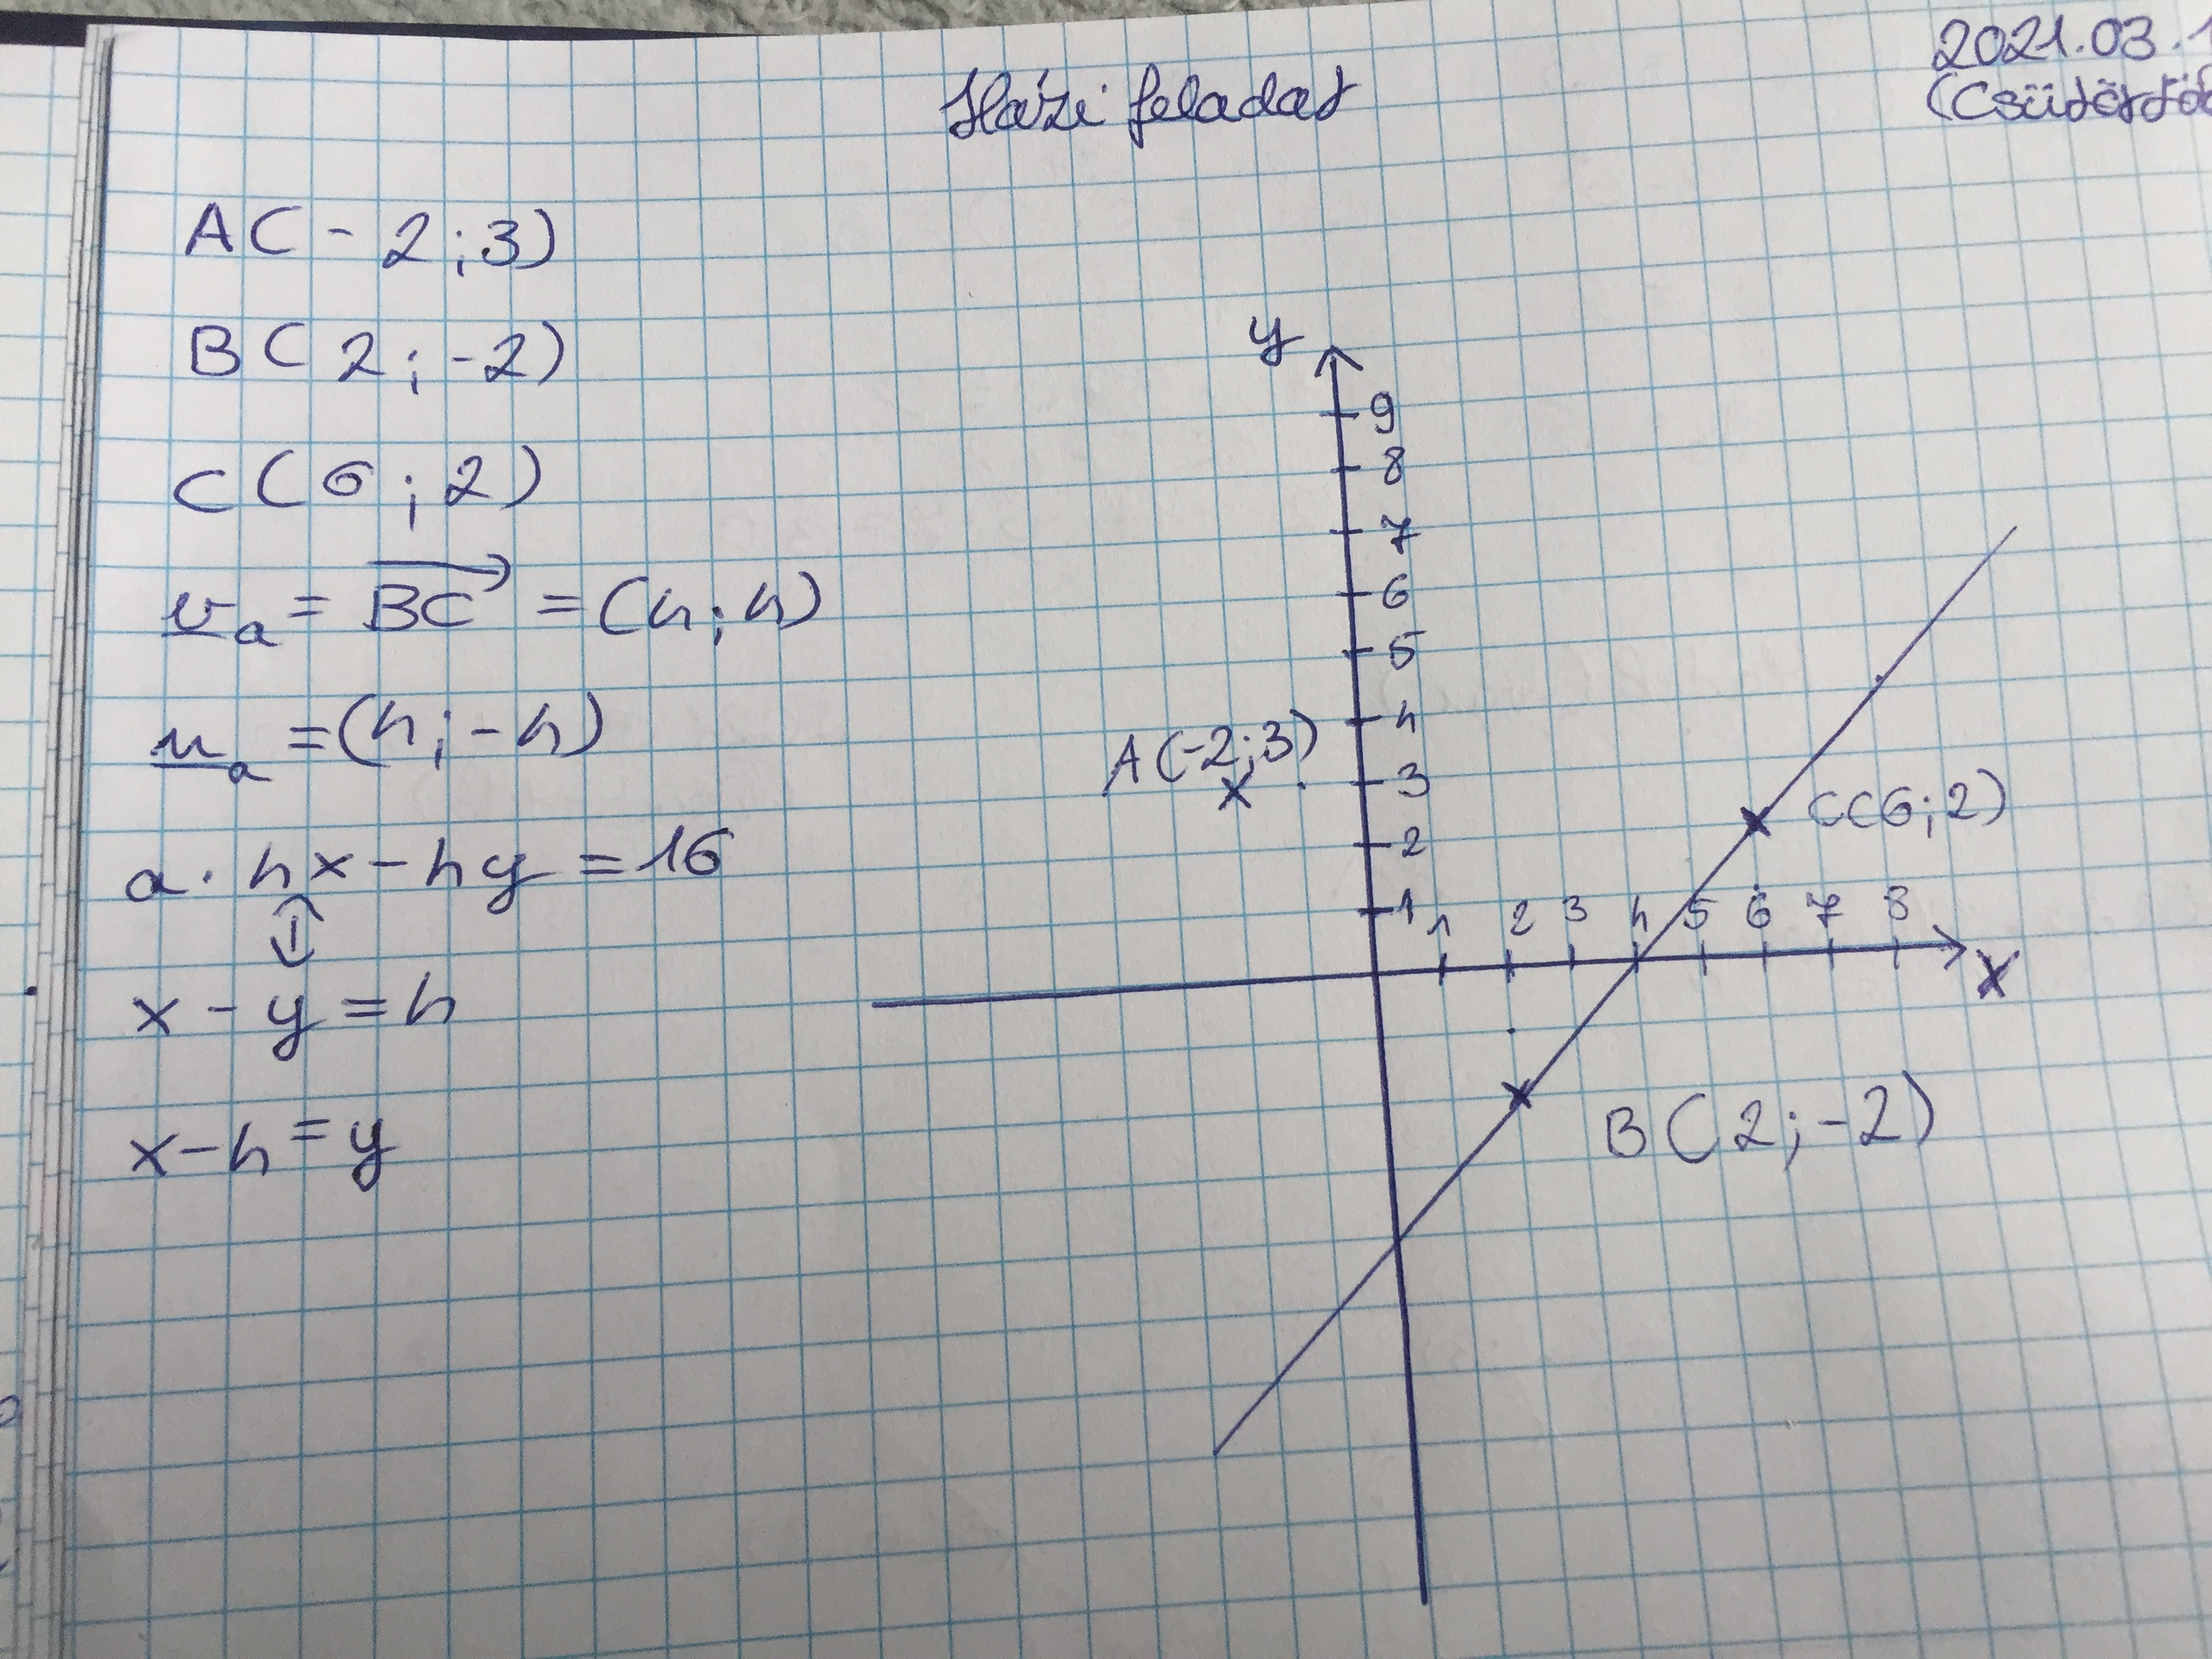 Házi feladat
2021.03.1
(Csütörtök
A(-2;3)
B(2;-2)
C(6;2)
v_a = BC = (4;4)
n_a = (4;-4)
a. 4x-4y=16
⇕
x-y=4
x-4=y
y
9
8
7
6
5
4
A(-2;3)
3
C(6;2)
2
1
1 2 3 4 5 6 7 8
x
B(2;-2)